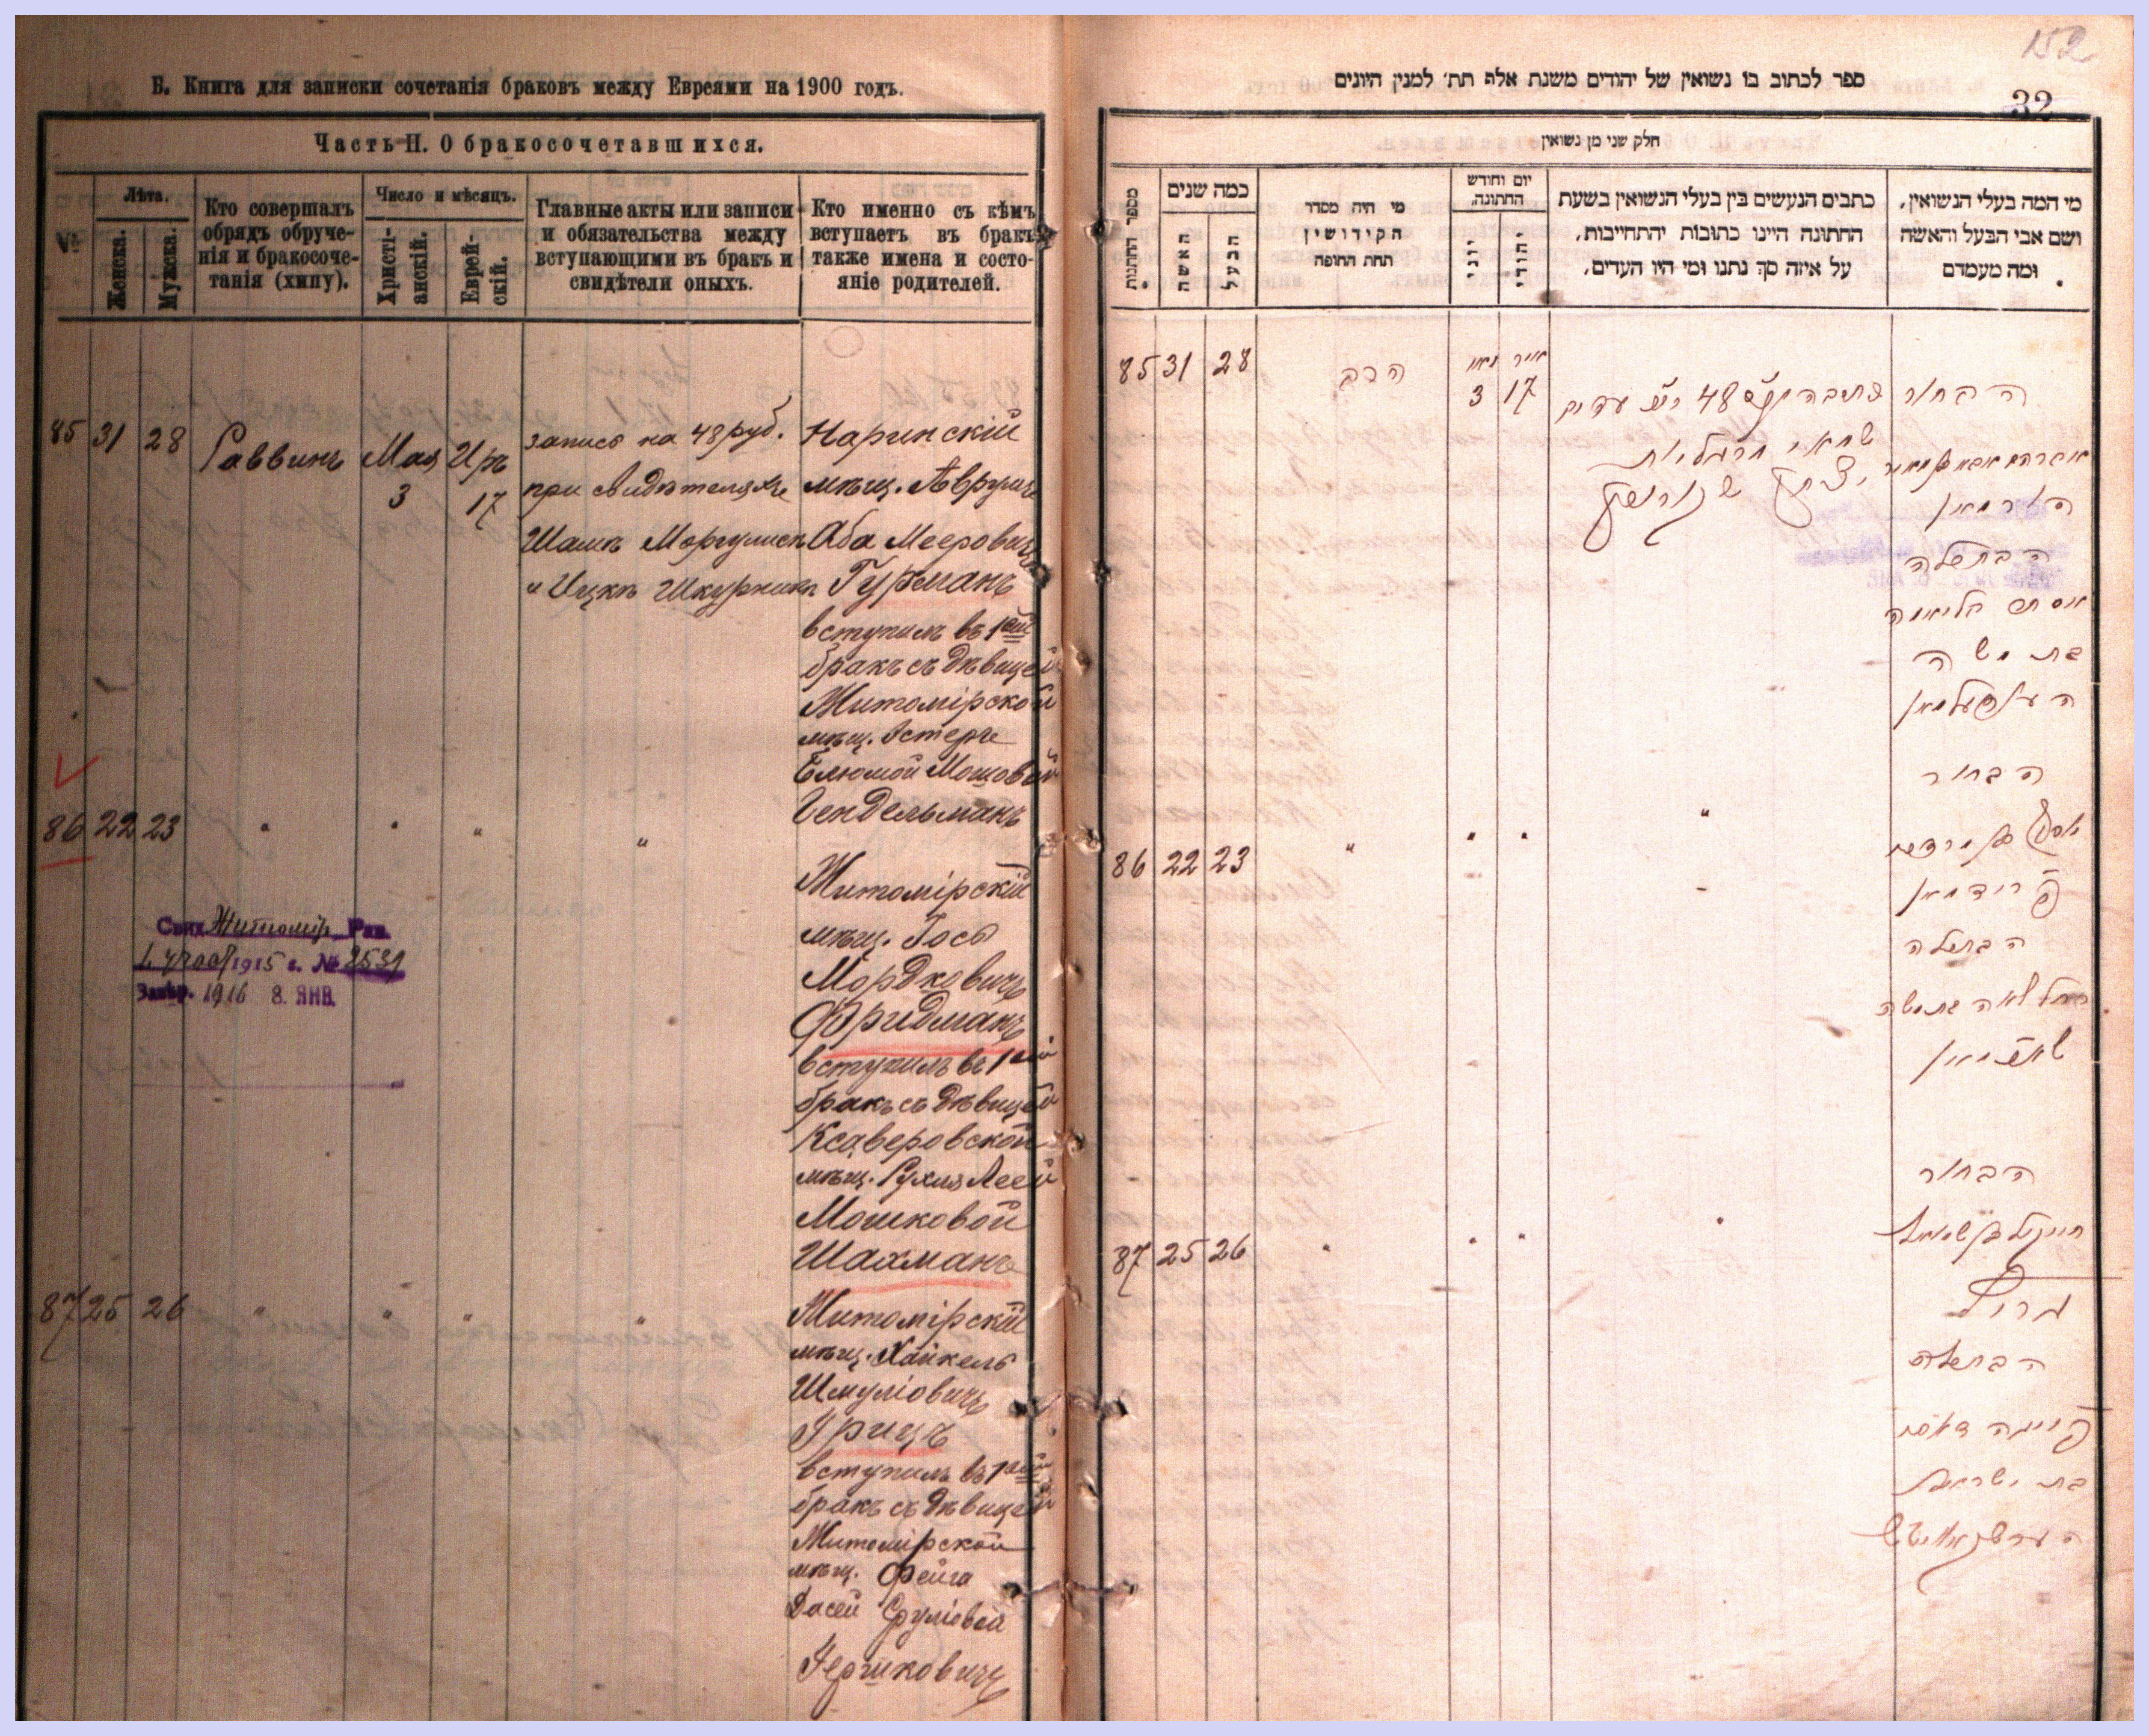 Б. Книга для записки сочетанія браковъ между Евреями на 1900 годъ.
Часть II. О бракосочетавшихся.
№
Лѣта.
Женска.
Мужска.
Кто совершалъ
обрядъ обруче-
нія и бракосоче-
танія (хипу).
Число и мѣсяцъ.
Христі-
анскій.
Еврей-
скій.
Главные акты или записи
и обязательства между
вступающими въ бракъ и
свидѣтели оныхъ.
Кто именно съ кѣмъ
вступаетъ въ бракъ
также имена и состо-
яніе родителей.
85 31 28 Раввинъ Мая 3 Иръ 17
запись на 48 руб.
при свидѣтеляхъ
Шамъ Моргулисъ
и Ицкъ Шкурникъ
Наринскій
мѣщ. Аврумъ
Аба Меерович
Гурманъ
вступилъ въ 1ый
бракъ съ дѣвицей
Житомірской
мѣщ. Эстерѣ
Блюмой Мошовой
Гендельманъ
86 22 23 " " " "
Житомірскій
мѣщ. Іось
Мордковичъ
Фридманъ
вступилъ въ 1ый
бракъ съ дѣвицей
Ксаверовской
мѣщ. Рухля Леей
Мошковой
Шахманъ
Свид. Житомір. Рав.
1915 г. № 8531
Завѣр. 1916 8. ЯНВ.
87 25 26 " " " "
Житомірскій
мѣщ. Хайкель
Шмуліовичъ
Грицъ
вступилъ въ 1ый
бракъ съ дѣвицей
Житомірской
мѣщ. Фейга
Дасей Сруліовой
Гершковичъ
152
ספר לכתוב בו נשואין של יהודים משנת אלף תת׳ למנין היונים
32
חלק שני מן נשואין
מספר החתנות
כמה שנים
האשה
הבעל
מי היה מסדר
הקידושין
תחת החופה
יום וחודש
החתונה,
יוני
יהודי
כתבים הנעשים בין בעלי הנשואין בשעת
החתונה היינו כתובות יהתחייבות,
על איזה סך נתנו ומי היו העדים,
מי המה בעלי הנשואין,
ושם אבי הבעל והאשה
ומה מעמדם
85 31 28 הרב מאי 3 אייר 17
הבחור
הורמאן
הבתולה
אסתר בליומה
בת משה
הענדעלמאן
86 22 23 " " " "
הבחור
יאסף בן מרדכי
פרידמאן
הבתולה
רחל לאה בת משה
שאכמאן
87 25 26 " " " "
הבחור
חייקיל בן שמואל
גריץ
הבתולה
פייגה דאסי
בת ישראל
הערשקאוויטש